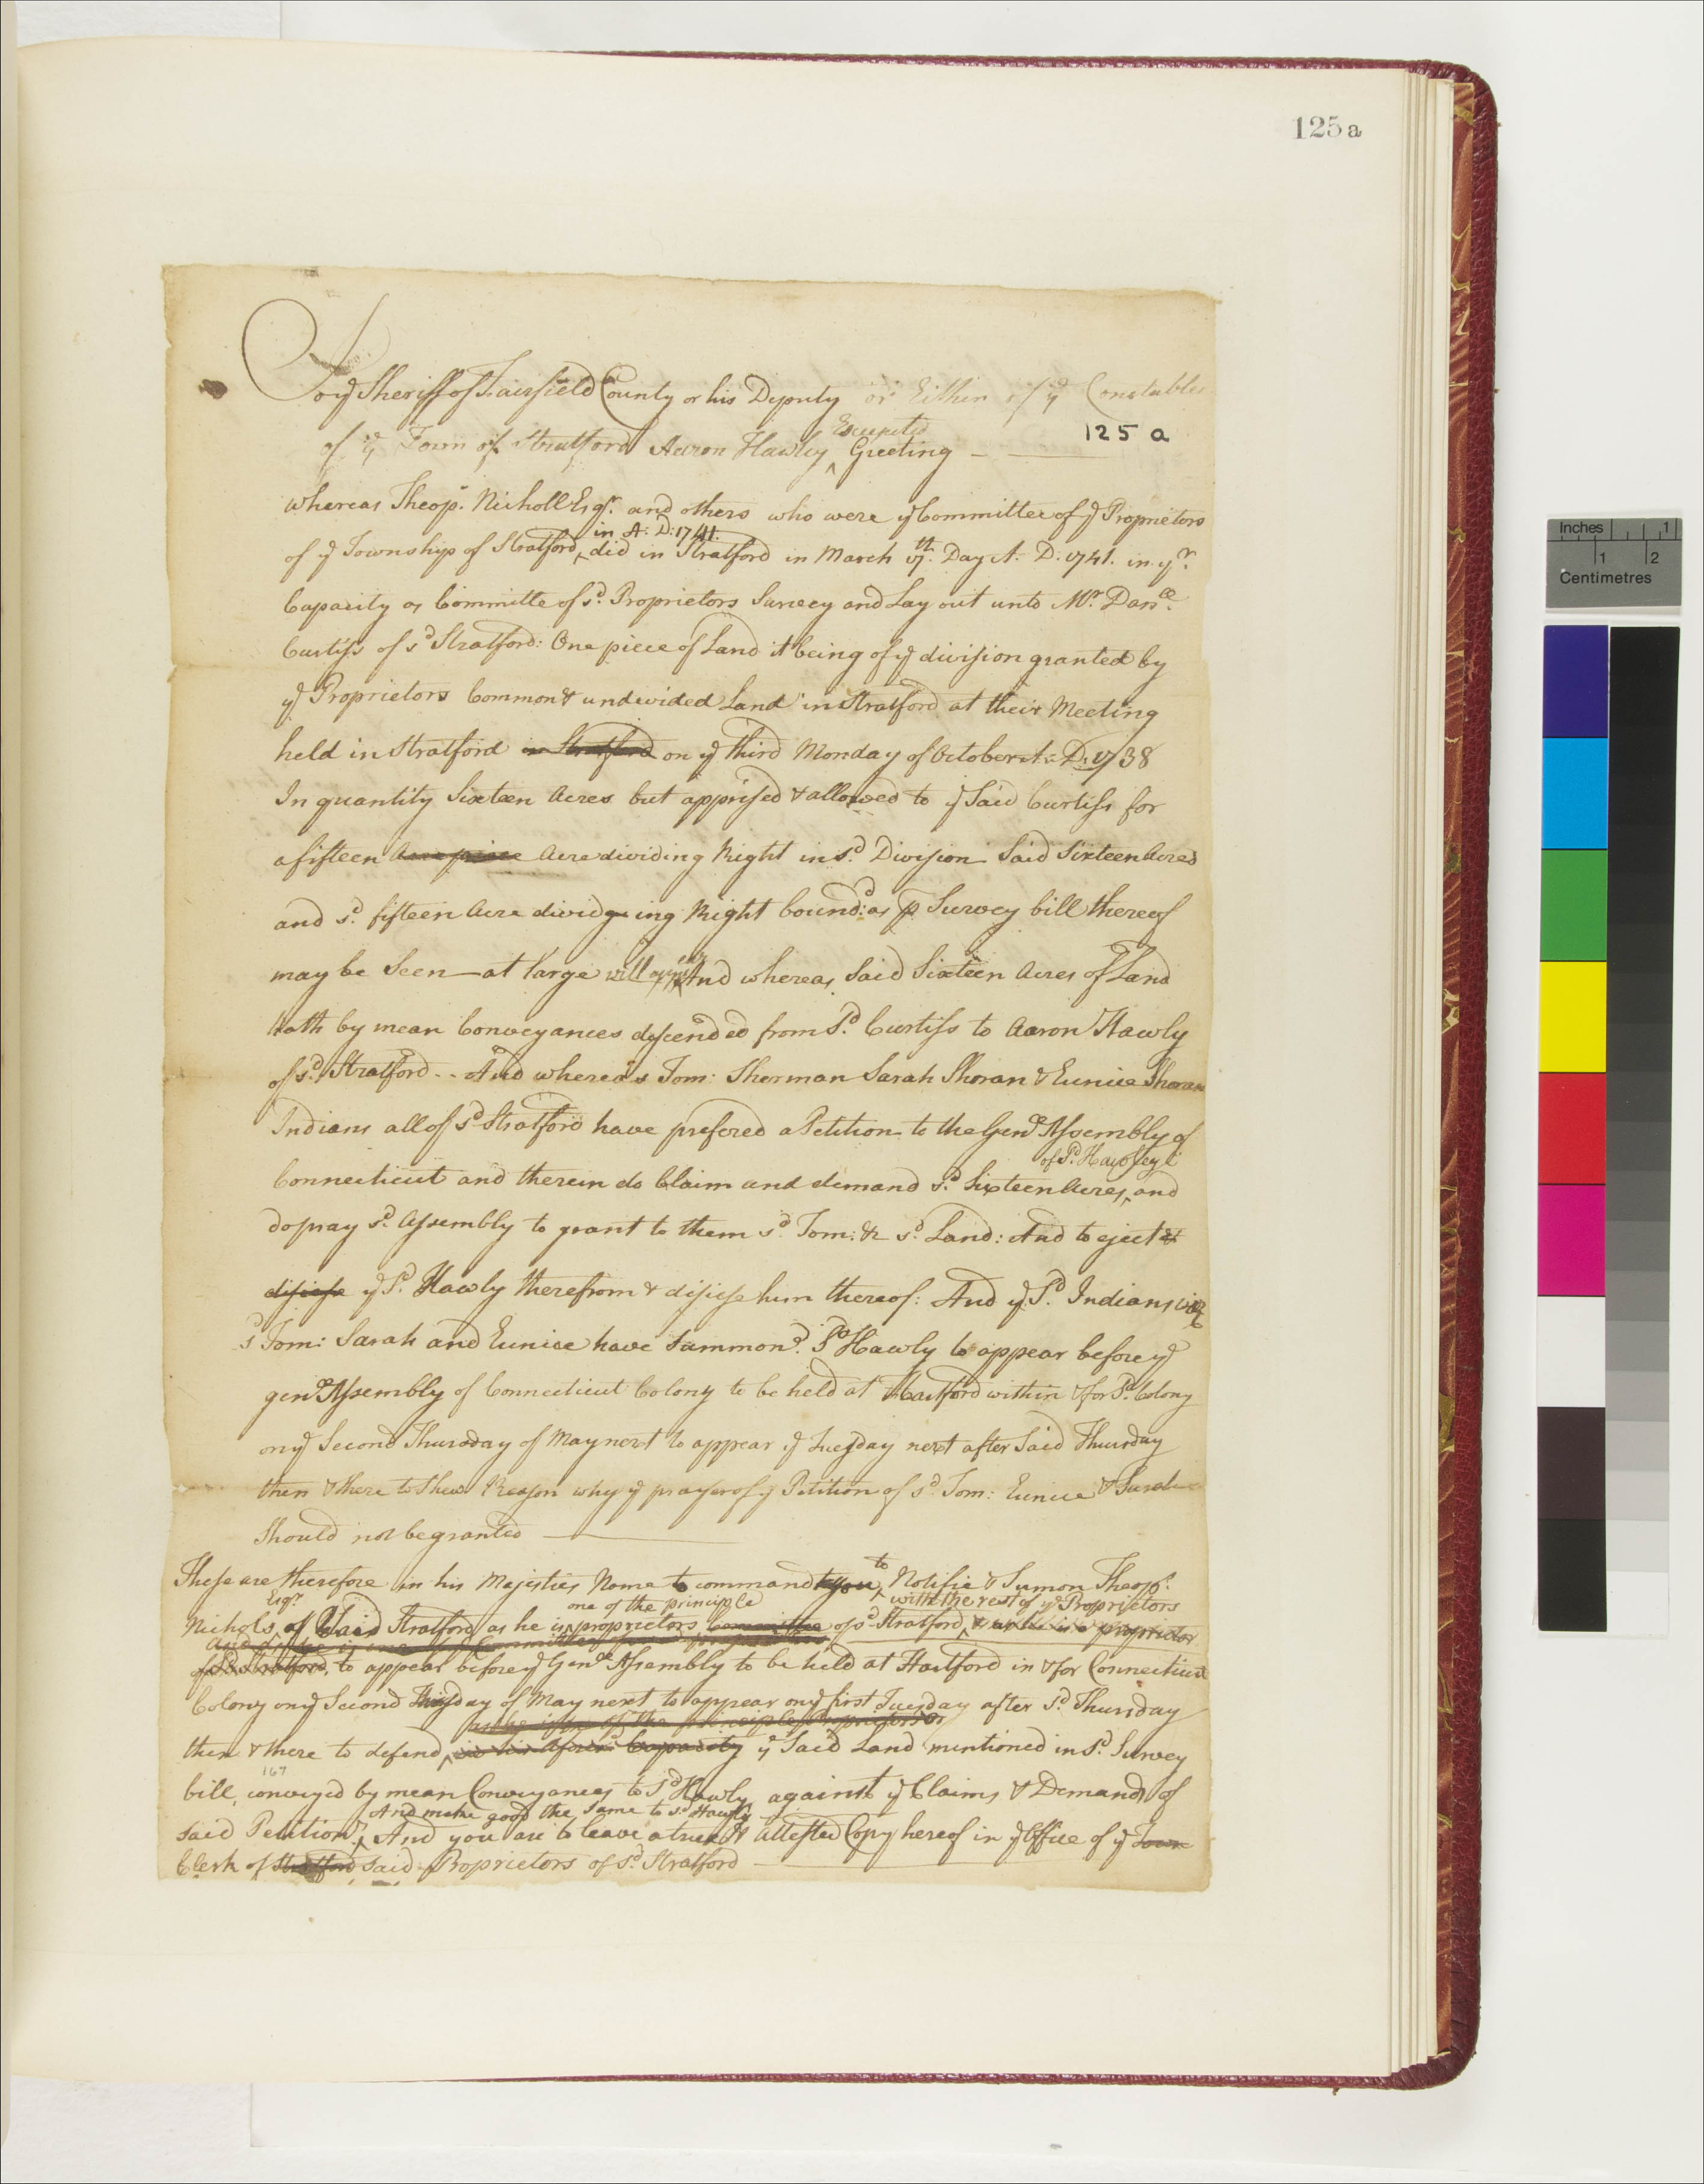 125 a
To yͤ Sheriff of Fairfield County or his Deputy or Either of yͤ Constables
of yͤ Town of Stratford Aaron Hawley ^ Excepted Greeting —
125 a
whereas Theopˢ Nicholl Esqʳ. and others who were yͤ Committee of yͤ Proprietors
in A: D: 1741.
of yͤ Township of Stratford ^ did in Stratford in March 17th. Day A: D: 1741. in yʳ.
Capacity as Committe of sᵈ. Proprietors Survey and Lay out unto Mʳ. Danˡˡ.
Curtiss of sᵈ Stratford: One piece of Land it being of yͤ division granted by
yͤ Proprietors Common & undivided Land in Stratford at their Meeting
held in Stratford in Stratford on yͤ third Monday of October A: D: 1738
In quantity Sixteen Acres but apprised & allowed to yͤ Said Curtiss for
a fifteen Acre dividing Right in sᵈ. Division Said Sixteen Acres
and sᵈ. fifteen Acre divideing Right bound: as ꝑ Survey bill thereof
may be Seen — at large will appear And whereas Said Sixteen Acres of Land
hath by mean Conveyances descended from Sᵈ. Curtiss to Aaron Hawly
of sᵈ. Stratford - - And whereas Tom: Sherman Sarah Shoran & Eunice Shoran
Indians all of Sᵈ Stratford have prefered a Petition to the Genˡˡ Assembly of
of Sᵈ. Hawley
Connecticut and therein do Claim and demand sᵈ. Sixteen Acres ^ and
do pray sᵈ. Assembly to grant to them sᵈ. Tom: &c sᵈ. Land: And to eject &
disiese yͤ Sᵈ. Hawly therefrom & disiese him thereof: And yͤ Sᵈ. Indians viz
sᵈ Tom: Sarah and Eunice have Summonᵈ. Sᵈ Hawly to appear before yͤ
genˡˡ Assembly of Connecticut Colony to be held at Hartford within & for Sᵈ. Colony
on yͤ Second Thursday of May next to appear yͤ Tuesday next after Said Thursday
then & there to Shew Reason why yͤ prayer of yͤ Petition of sᵈ. Tom: Eunice & Sarah
Should not be granted —
These are therefore in his Majesties Name to command you ^ to Notifie & Sumon Theopˢ.
Esqʳ. one of the principle with the rest of yͤ Proprietors
Nichols ^ of Said Stratford as he is ^ proprietors Committee of sᵈ Stratford ^ proprietor
of sᵈ Stratford, to appear before yͤ Genˡˡ Assembly to be held at Hartford in & for Connecticut
Colony on yͤ Second Thursday of May next to appear on yͤ first Tuesday after Sᵈ. Thursday
as he is one of the principle Proprietors
then & there to defend ^ in his aforesᵈ. Capacity yͤ Said Land mentioned in sᵈ. Survey
167
bill, conveyed by mean Conveyances to Sᵈ Hawly against yͤ Claims & Demands of
And make good the Same to sᵈ Hawly
said Petitionʳˢ ^ And you are to leave a true & Attested Copy hereof in yͤ Office of yͤ Town
Clerk of Stratford said Proprietors of sᵈ. Stratford —